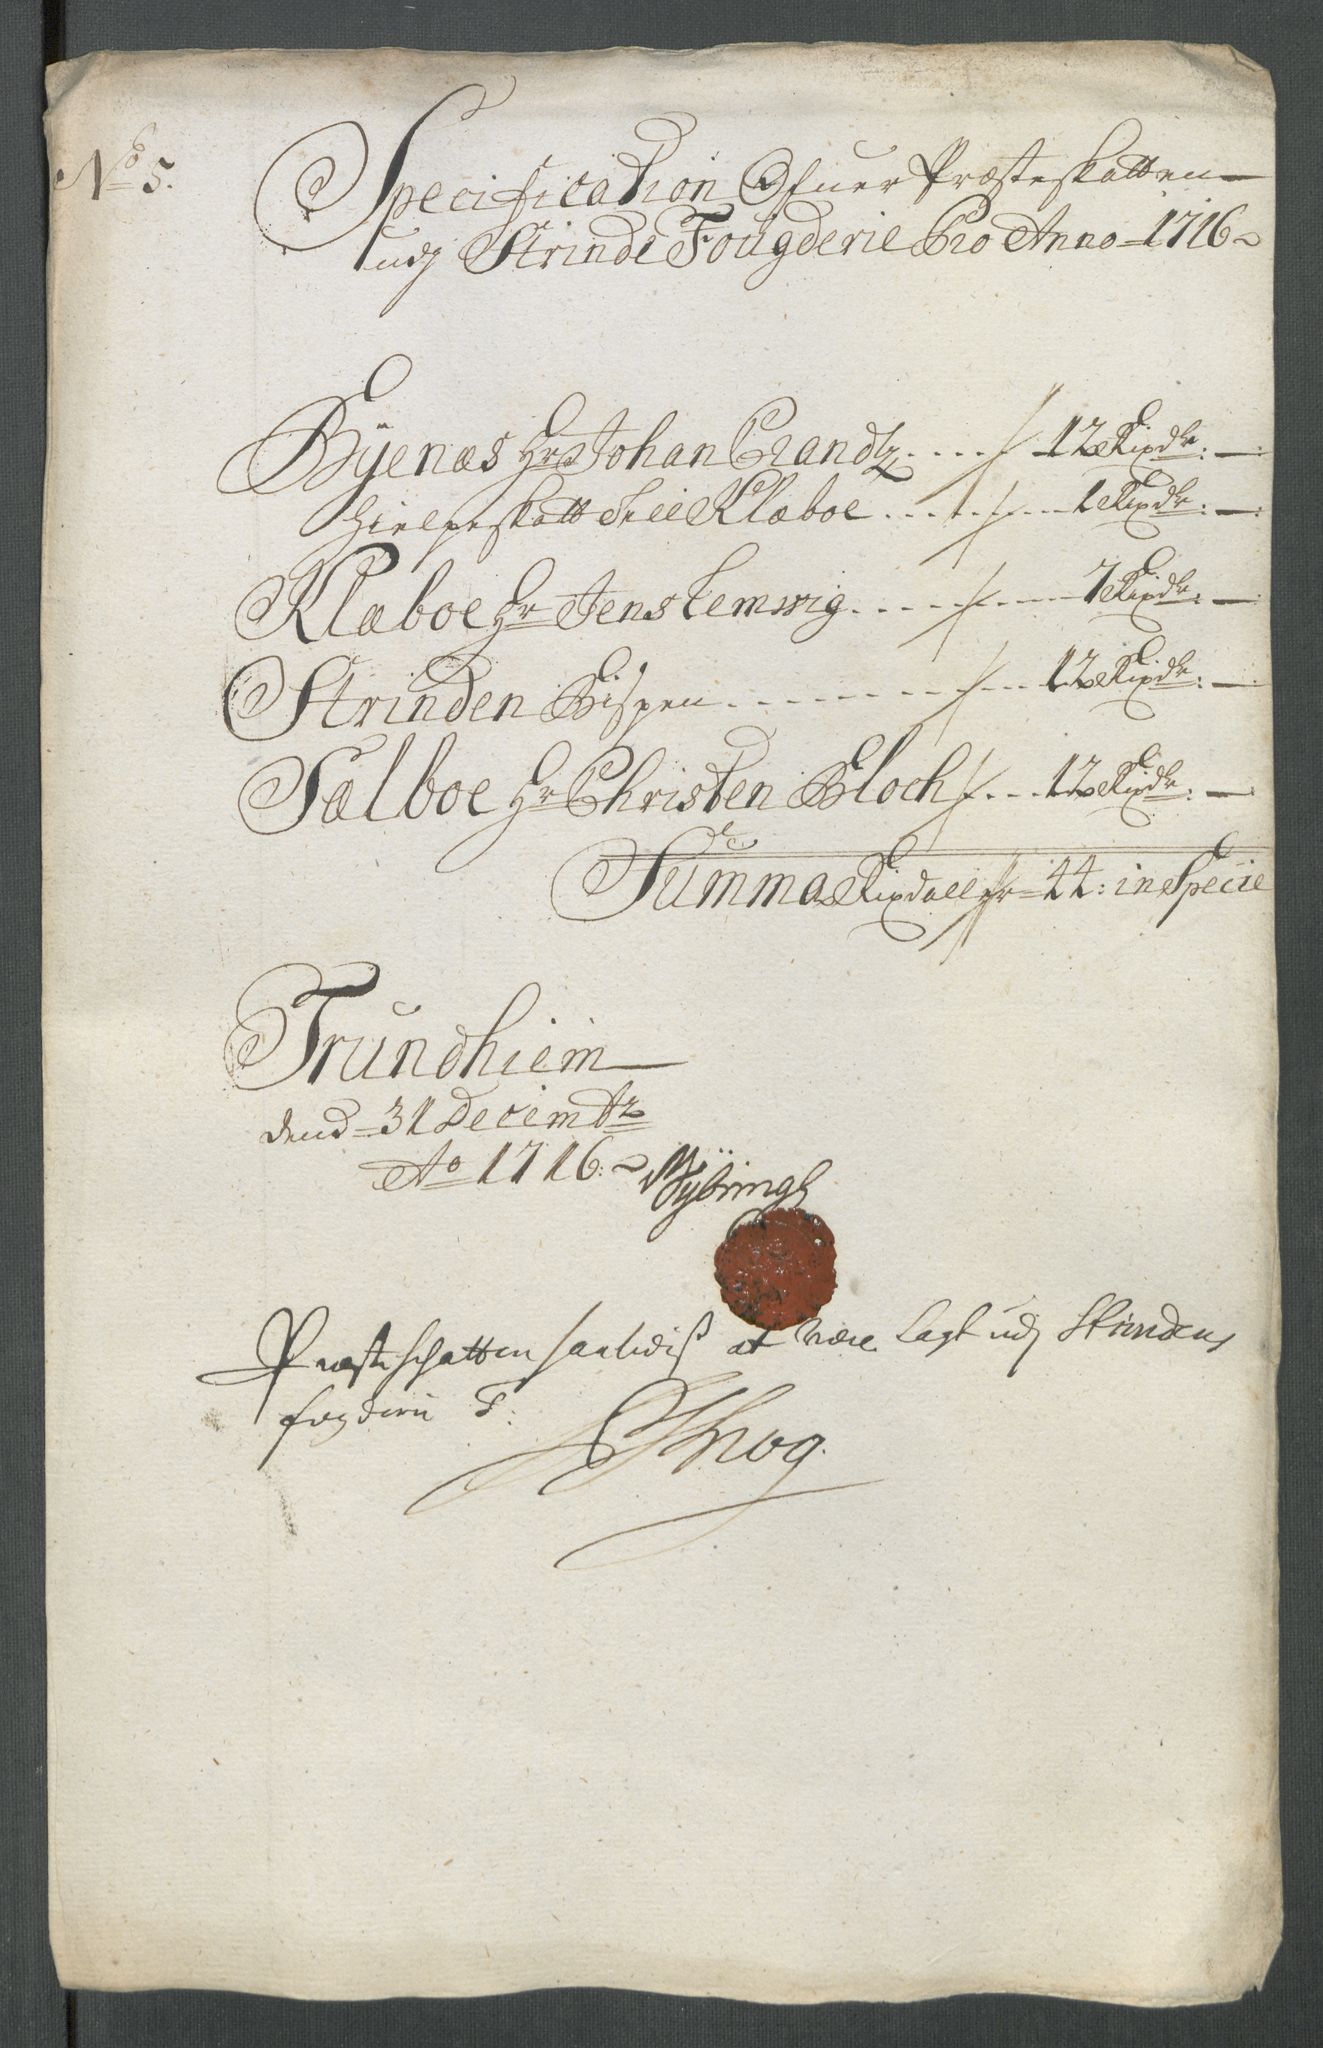 No 5.
Specification Ofuer Præsteskatten
udj Strinde Fougderie Pro Anno 1716
Byenæs Hr Johan Crandtz .... 12 Rixdlr: —
Hielpeskatt til Klæboe ...... 1 Rixdlr: —
Klæboe Hr Jens Lemwig ...... 7 Rixdlr: —
Strinden Bispen ......... 12 Rixdlr: —
Sælboe Hr Christen Bloch ... 12 Rixdlr: —
Summa Rixdaller 44: in Specie
Trundhiem
dend 31 Decembr
Ao 1716:
Præsteschatten saaledis at være lagt udj Strindens
fogderie T: